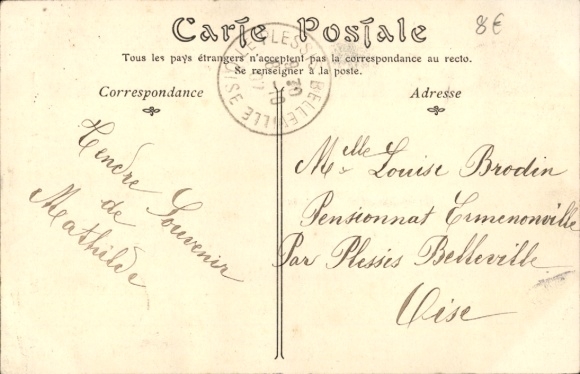 8€
Carte Postale
Tous les pays étrangers n'acceptent pas la correspondance au recto.
Se renseigner à la poste.
Correspondance
Adresse
Tendre Souvenir
de
Mathilde
Melle Louise Brodin
Pensionnat Ermenonville
Par Plessis Belleville
Oise
LE PLESSIS BELLEVILLE OISE